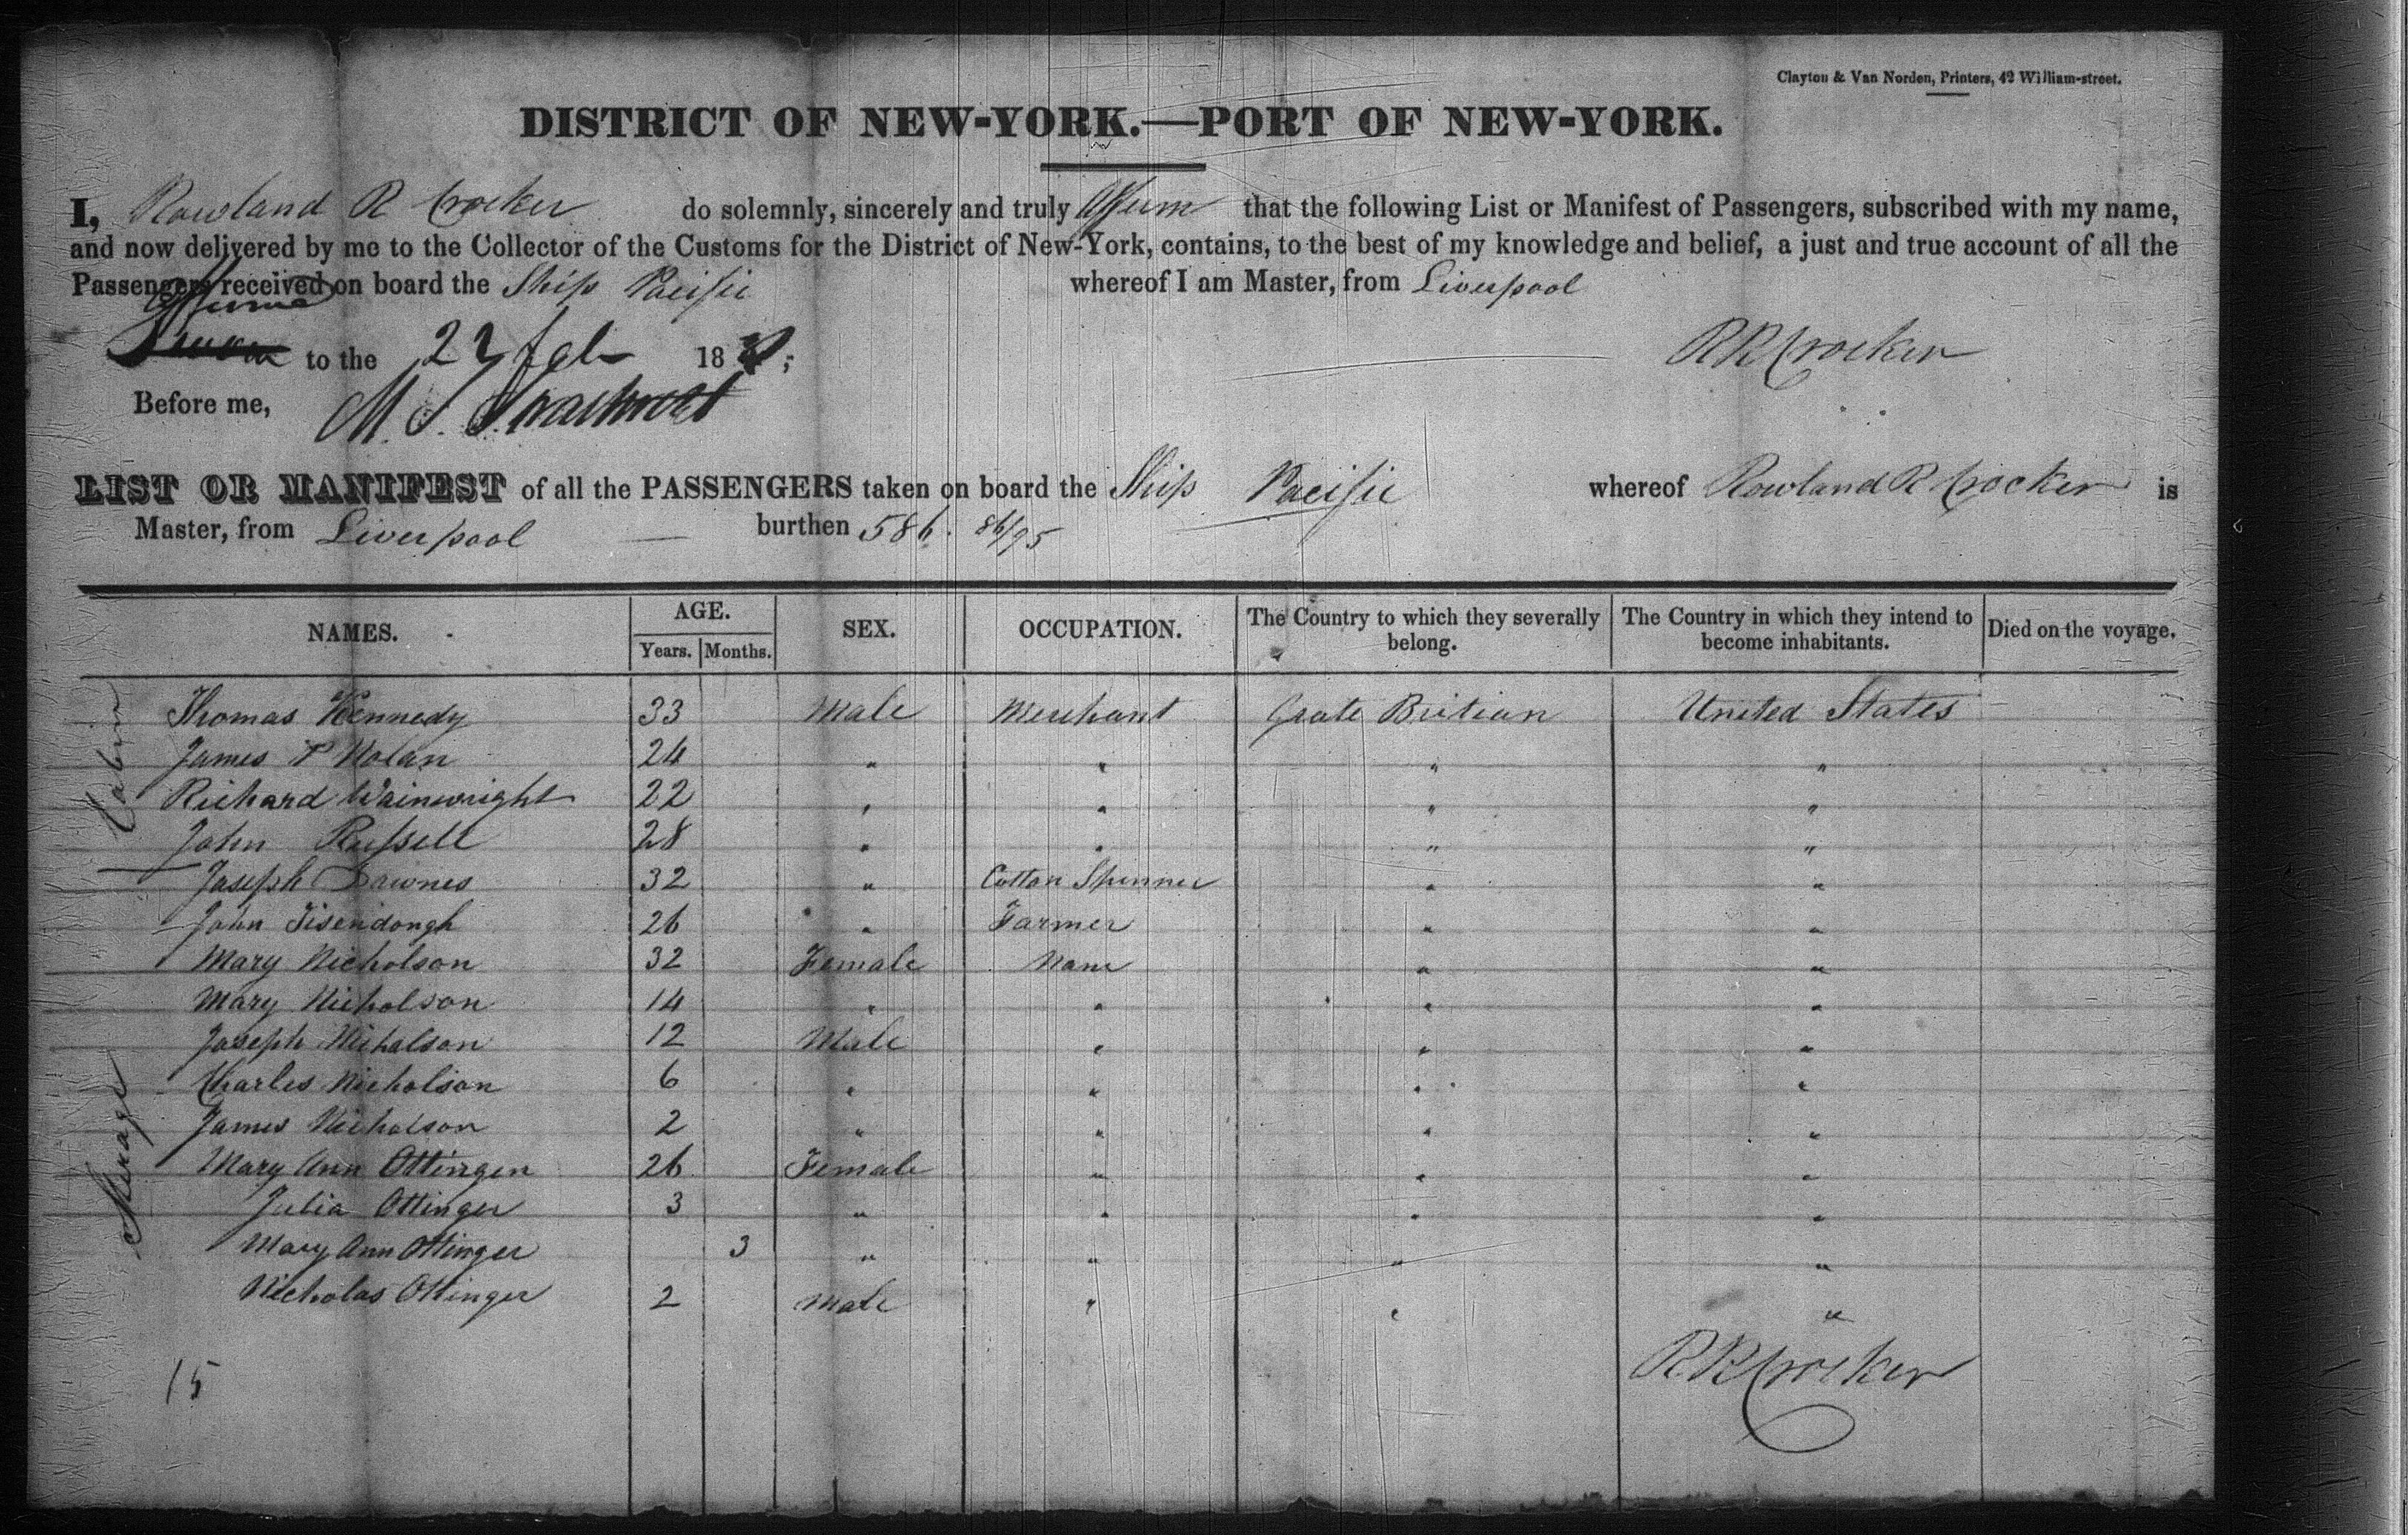 Clayton & Van Norden, Printers, 42 William-street.
DISTRICT OF NEW-YORK.—PORT OF NEW-YORK.
I, Rowland R Crocker do solemnly, sincerely and truly Affirm that the following List or Manifest of Passengers, subscribed with my name,
and now delivered by me to the Collector of the Customs for the District of New-York, contains, to the best of my knowledge and belief, a just and true account of all the
Passengers received on board the Ship Pacific whereof I am Master, from Liverpool
Affirmed
Sworn to the Feb 18 R R Crocker
Before me, M. S.
LIST OR MANIFEST of all the PASSENGERS taken on board the Ship Pacific whereof Rowland R Crocker is
Master, from Liverpool burthen 586. 86/95
NAMES. AGE. SEX. OCCUPATION. The Country to which they severally belong. The Country in which they intend to become inhabitants. Died on the voyage.
Years. Months.
Cabin
Thomas Kennedy 33 Male Merchant Grate Britian United States
James P Nolan 24 " " " "
Richard Wainwright 22 " " " "
John Russell 28 " " " "
Joseph Dawnes 32 " Cotton Spinner " "
John 26 " Farmer " "
Mary Nicholson 32 Female None " "
Mary Nicholson 14 " " " "
Joseph Nicholson 12 Male " " "
Charles Nicholson 6 " " " "
Sterage
James Nicholson 2 " " " "
Mary Ann Ottinger 26 Female " " "
Julia Ottinger 3 " " " "
Mary Ann Ottinger 3 " " " "
Nicholas Ottinger 2 Male " " "
15 R R Crocker